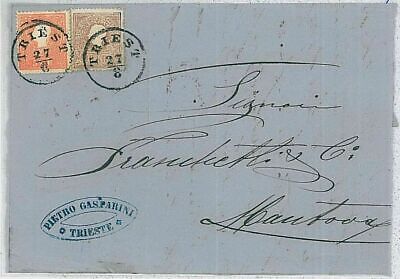 TRIEST
27
6
TRIEST
27
6
Signori
Franchetti & Cº
Mantova
PIETRO GASPARINI
TRIESTE